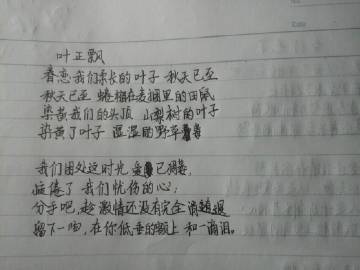 叶正飘
眷恋我们柔长的叶子 秋天已至
秋天已至 蜷榴在麦捆里的田鼠
染黄我们的头顶 山梨树的叶子
染黄了叶子 湿湿的野草莓
我们困处这时光 已
疲倦了 我们忧伤的心；
分手吧，趁激情还没有完全消退
留下一吻，在你低垂的额上 和一滴泪。